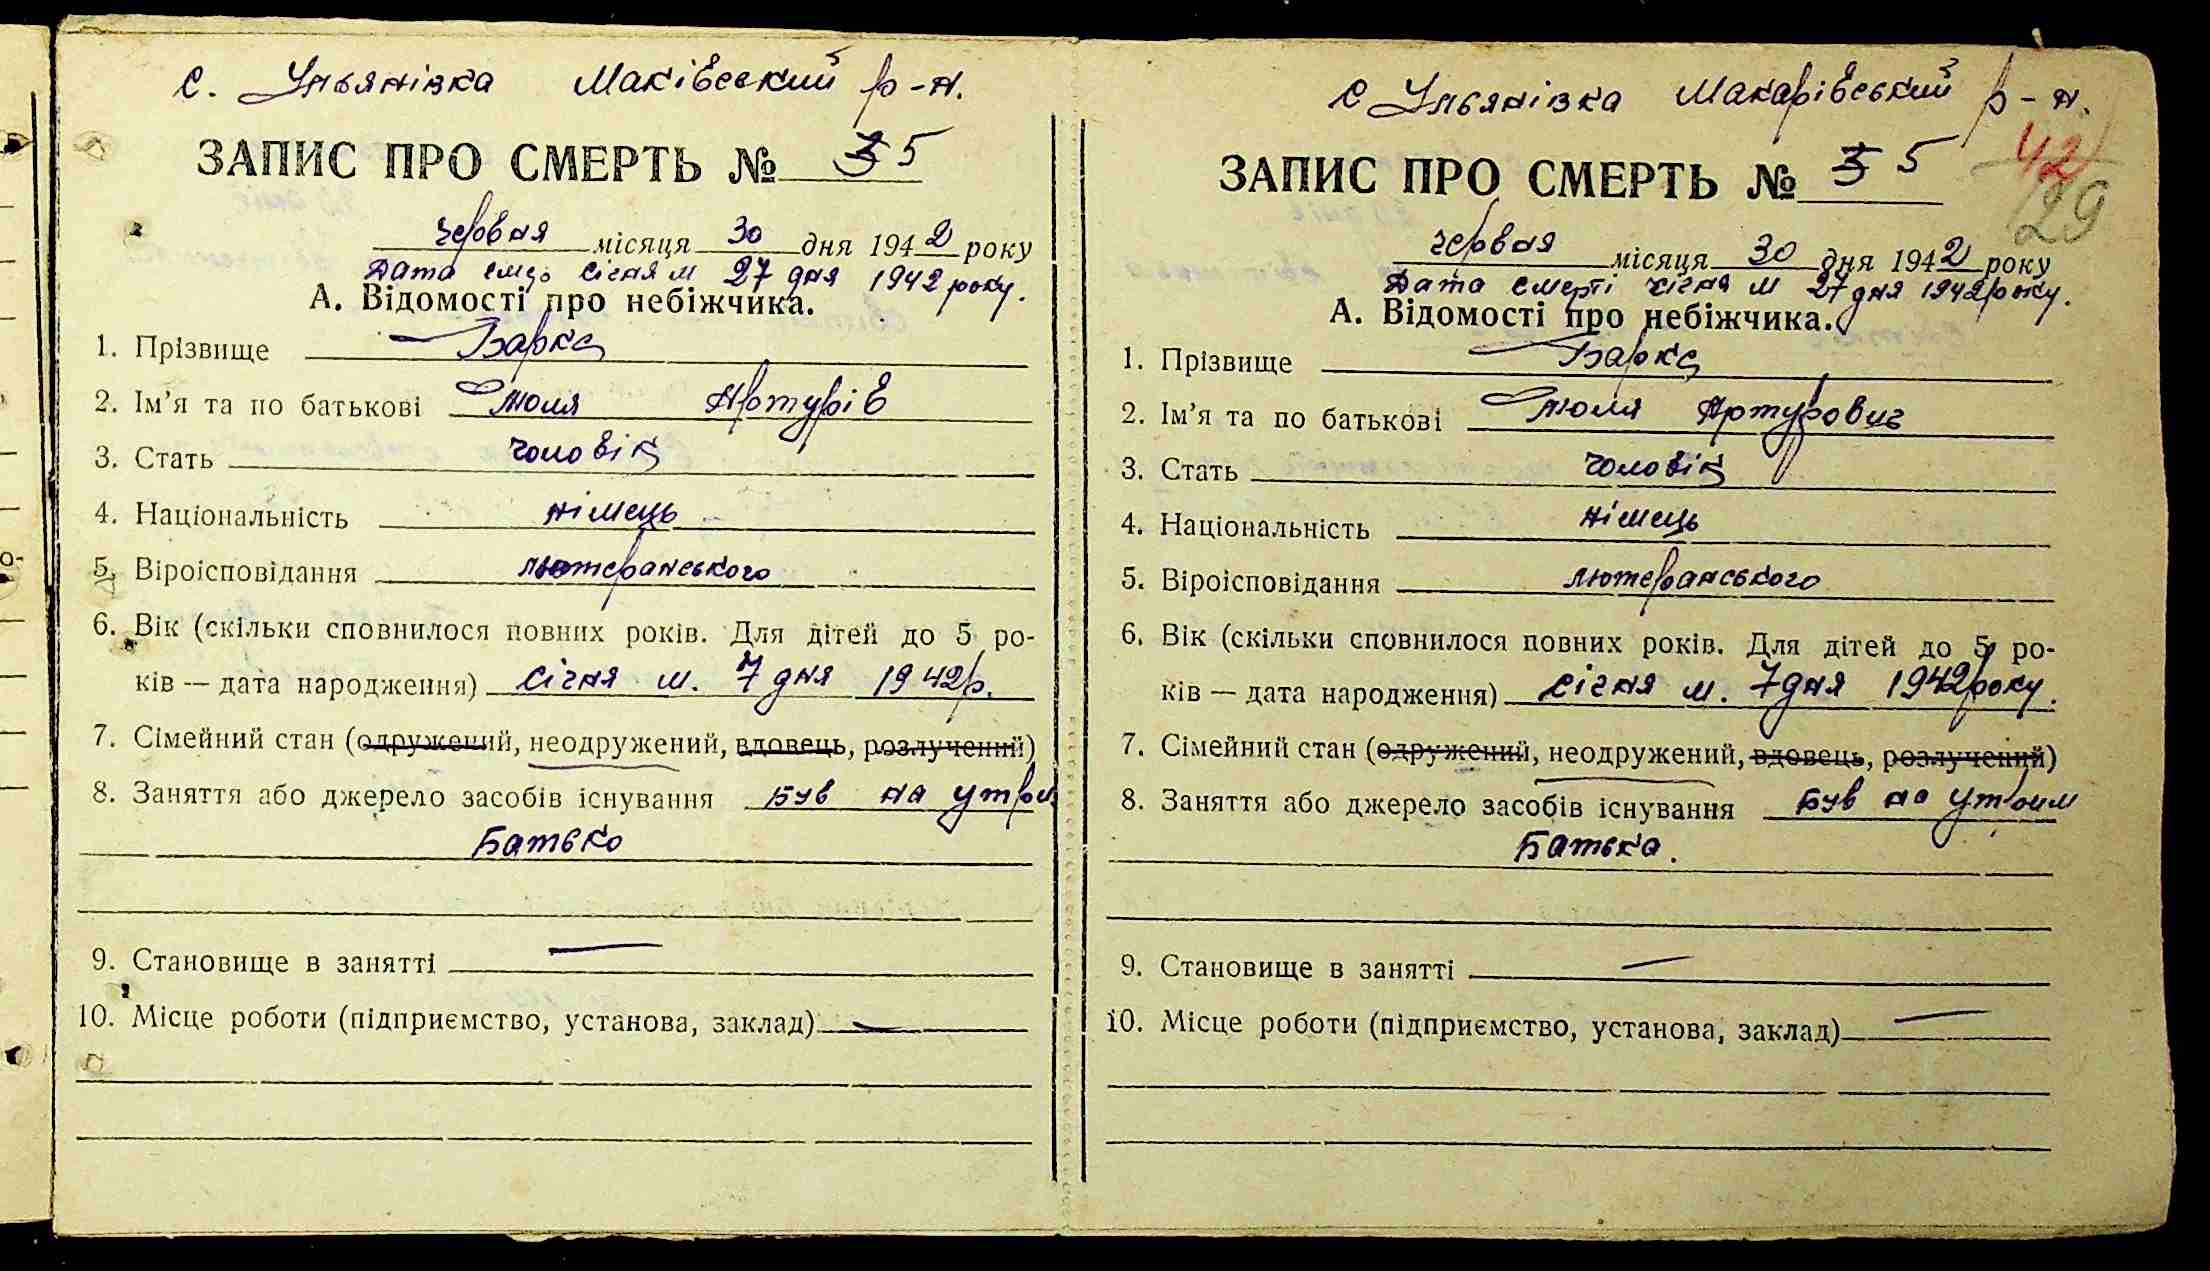 с. Ульянівка Маківський р-н.
ЗАПИС ПРО СМЕРТЬ № 5
червня місяця 30 дня 1942 року
Дата смер січня м 27 дня 1942 року.
А. Відомості про небіжчика.
1. Прізвище Барка
2. Ім'я та по батькові Юлія Артурів
3. Стать чоловік
4. Національність німець
5. Віроісповідання лютеранського
6. Вік (скільки сповнилося повних років. Для дітей до 5 ро-
ків — дата народження) січня м. 7 дня 1942 р.
7. Сімейний стан (одружений, неодружений, вдовець, розлучений)
8. Заняття або джерело засобів існування Був на утрим
Батько
9. Становище в занятті —
10. Місце роботи (підприємство, установа, заклад) —
с Ульянівка Макарівський р-н.
42
29
ЗАПИС ПРО СМЕРТЬ № 5
червня місяця 30 дня 1942 року
Дата смерті січня м 27 дня 1942 року.
А. Відомості про небіжчика.
1. Прізвище Барка
2. Ім'я та по батькові Юлія Артурович
3. Стать чоловік
4. Національність німець
5. Віроісповідання лютеранського
6. Вік (скільки сповнилося повних років. Для дітей до 5 ро-
ків — дата народження) січня м. 7 дня 1942 року.
7. Сімейний стан (одружений, неодружений, вдовець, розлучений)
8. Заняття або джерело засобів існування Був на утрим
Батька.
9. Становище в занятті —
10. Місце роботи (підприємство, установа, заклад) —